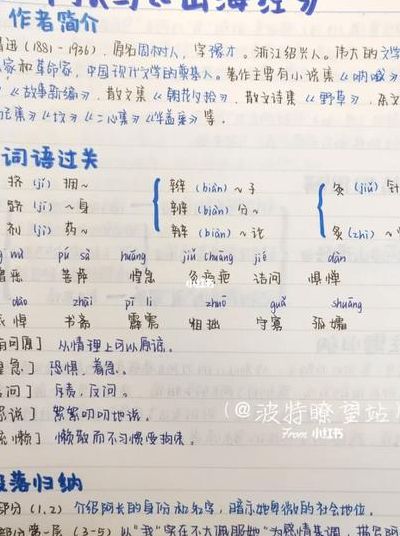 《山海经》
作者简介
鲁迅(1881-1936),原名周树人,字豫才。浙江绍兴人。伟大的文学
家和革命家,中国现代文学的奠基人。著作主要有小说集《呐喊》
《故事新编》,散文集《朝花夕拾》,散文诗集《野草》,杂文
集》《坟》《二心集》《华盖集》等.
词语过关
挤(jǐ)拥~ 辫(biàn)~子 灸(jiǔ)针
跻(jī)~身 辨(biàn)分~
剂(jì)药~ 辩(biàn)~论 炙(zhì)~
wù pú sà huáng jiǔ chuāng jié dàn
憎恶 菩萨 惶急 灸疮疤 诘问 惧惮
dào zhāi pī lì zhuō guǎ shuāng
疾悼 书斋 霹雳 粗拙 守寡 孤孀
情有可原] 从情理上可以原谅。
惶急] 恐惧,着急。
诘问] 斥责,反问。
絮说] 絮絮叨叨地说。
疏懒] 懒散而不习惯受拘束。
小红书
(@波特瞭望站)
From 小红书
段落归纳
部分(1.2)介绍阿长的身份和名字,暗示她卑微的社会地位.
部分第一层(3-5)从“我”实在不大佩服她”为感情基调,描写阿